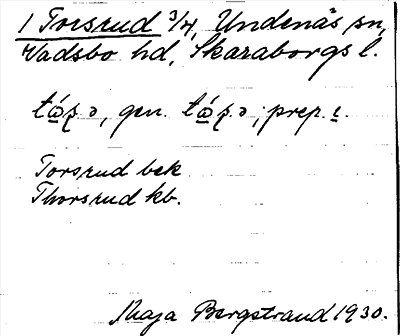 1 Torsrud 3/4, Undenäs sn,
Vadsbo hd, Skaraborgs l.
gen. prep. ι.
Torsrud bek
Thorsrud kb.
Maja Bergstrand 1930.